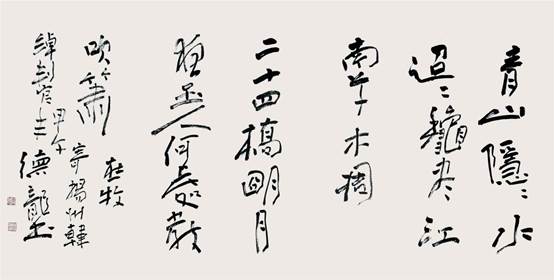 青山隱〻水
迢〻龝盡江
南草木凋
二十四橋明月
夜玉人何處教
吹簫
杜牧
寄揚州韓
綽判官
甲午冬
德龍書